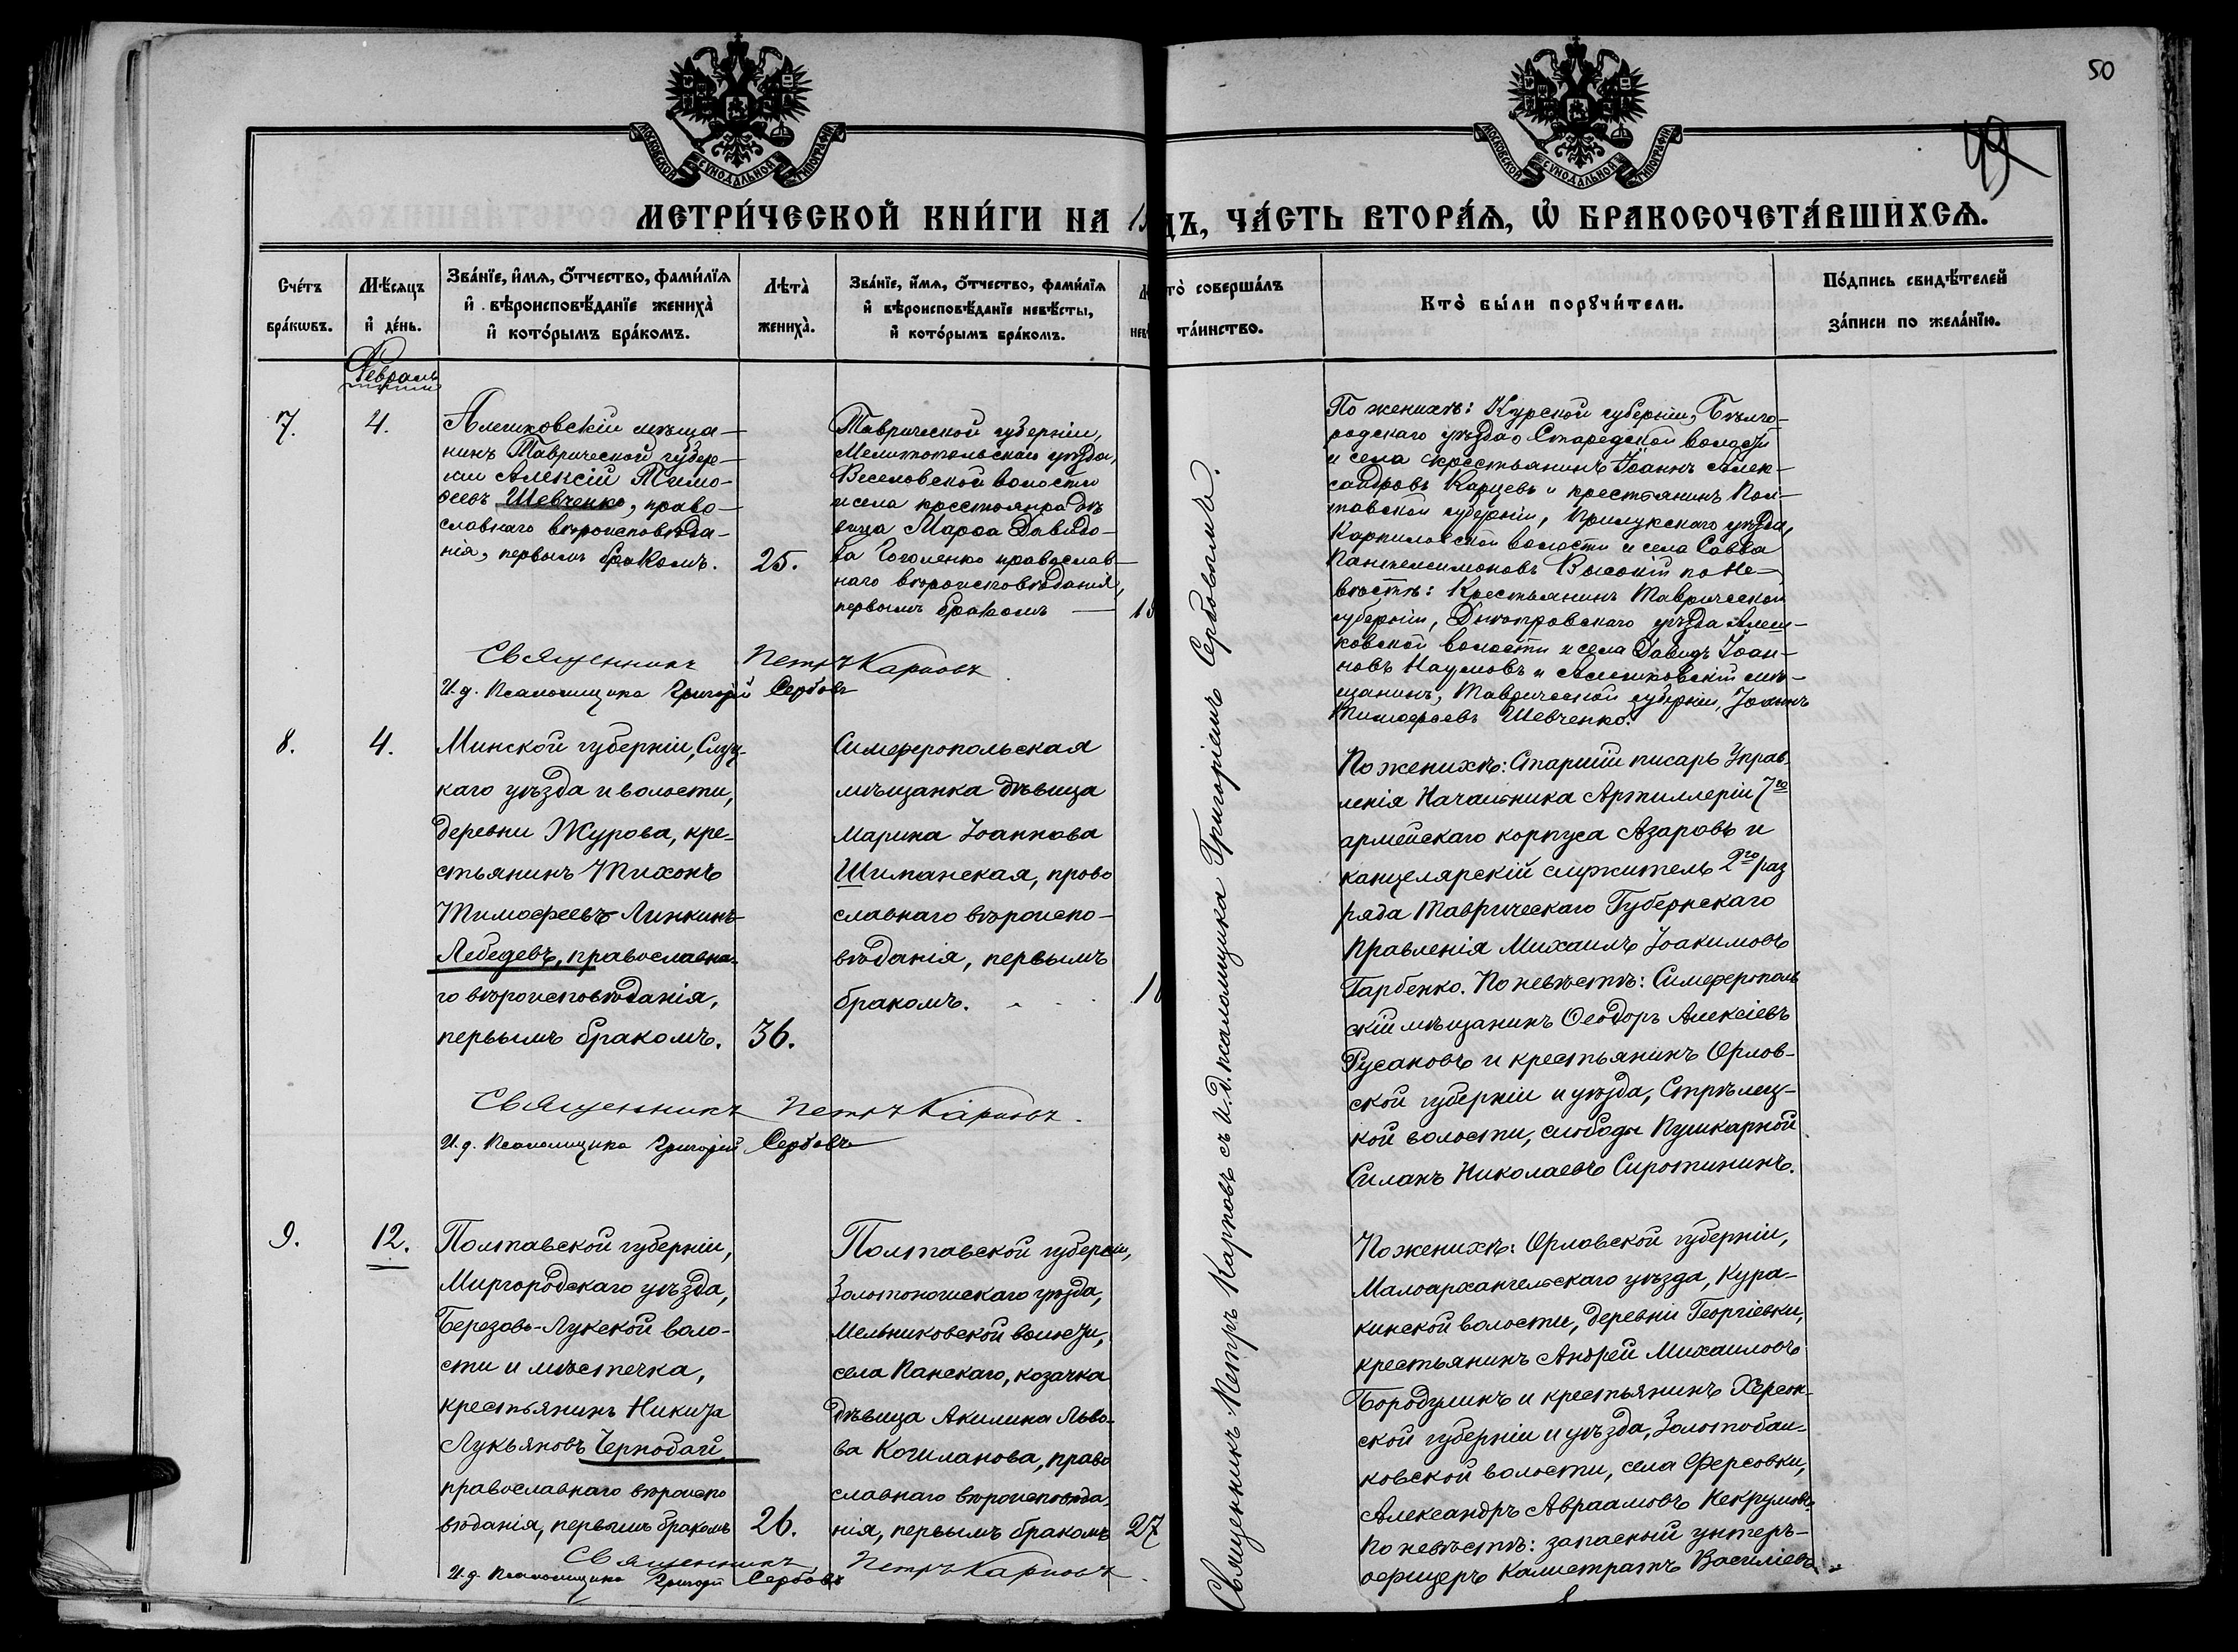 50
49
МОСКОВСКОЙ СУНОДАЛЬНОЙ ТИПОГРАФІИ
МОСКОВСКОЙ СУНОДАЛЬНОЙ ТИПОГРАФІИ
МЕТРИ́ЧЕСКОЙ КНИ́ГИ НА 1
ДЪ, ЧА́СТЬ ВТОРА́Я, Ѡ БРАКОСОЧЕТА́ВШИХСЯ.
Сче́тъ
бра́кѡвъ.
Мѣ́сяцъ
и҆ де́нь.
Зва́нїе, и҆́мя, ѻ҆́тчество, фами́лїя
и҆ вѣроисповѣ́данїе жениха̀
и҆ кото́рымъ бра́комъ.
Лѣта̀
жениха̀.
Зва́нїе, и҆́мя, ѻ҆́тчество, фами́лїя
и҆ вѣроисповѣ́данїе невѣ́сты,
и҆ кото́рымъ бра́комъ.
Л
нев
то̀ соверша́лъ
та́инство.
Кто̀ бы́ли порꙋчи́тели.
По́дпись свидѣ́телей
за́писи по жела́нїю.
Февраль
7.
4.
Алешковскій мѣща-
нинъ Таврической губер-
ніи Алексій Тимо-
ѳеевъ Шевченко, право-
славнаго вѣроисповѣда-
нія, первымъ бракомъ.
25.
Таврической губерніи,
Мелитопольскаго уѣзда,
Веселовской волости
и села крестьянка дѣ
вица Марѳа Давидо-
ва Гоголенко православ-
наго вѣроисповѣданія,
первымъ бракомъ —
18
Священникъ Петръ Карповъ
И. д. Псаломщика Григорій Сербовъ
По женихѣ: Курской губерніи, Бѣлго-
родскаго уѣзда, волости
и села крестьянинъ Іоаннъ Алек-
сандровъ Карцевъ и крестьянинъ Пол-
тавской губерніи, Прилукскаго уѣзда,
Карпиловской волости и села Савва
Пантелеимоновъ Высокій по Не-
вѣстѣ: Крестьянинъ Таврической
губерніи, Днѣпровскаго уѣзда Алеш-
ковской волости и села Давидъ Іоан-
новъ Наумовъ и Алешковскій мѣ-
щанинъ, Таврической губерніи, Іоаннъ
Тимоѳеевъ Шевченко.
8.
4.
Минской губерніи, Слуц-
каго уѣзда и волости,
деревни Журова, кре-
стьянинъ Тихонъ
Тимоѳеевъ Линкинъ-
Лебедевъ, православна-
го вѣроисповѣданія,
первымъ бракомъ.
36.
Симферопольская
мѣщанка дѣвица
Марина Іоаннова
Шиманская, право
славнаго вѣроиспо-
вѣданія, первымъ
бракомъ.
1
Священникъ Петръ Карповъ.
И. д. Псаломщика Григорій Сербовъ
По женихѣ: Старшій писарь Управ-
ленія Начальника Артиллеріи 7го
армейскаго корпуса Азаровъ и
канцелярскій служитель 2го раз
ряда Таврическаго Губернскаго
Правленія Михаилъ Іоакимовъ
Гарбенко. По невѣстѣ: Симферополь
скій мѣщанинъ Ѳеодоръ Алексіевъ
Русановъ и крестьянинъ Орлов-
ской губерніи и уѣзда, Стрѣлец-
кой волости, слободы Пушкарной
Силанъ Николаевъ Сиротининъ.
9.
12.
Полтавской губерніи,
Миргородскаго уѣзда,
Березово-Лукской воло-
сти и мѣстечка,
крестьянинъ Никита
Лукьяновъ Чернобай,
православнаго вѣроиспо
вѣданія, первымъ бракомъ
26.
Полтавской губерніи,
Золотоношскаго уѣзда,
Мельниковской волости,
села Панскаго, козачка
дѣвица Акилина Льво-
ва Кочиланова, право
славнаго вѣроисповѣда-
нія, первымъ бракомъ
27
Священникъ Петръ Карповъ
И. д. Псаломщика Григорій Сербовъ
По женихѣ: Орловской губерніи,
Малоархангельскаго уѣзда, Кура-
кинской волости, деревни Георгіевки,
крестьянинъ Андрей Михаиловъ
Бородулинъ и крестьянинъ Херсон-
ской губерніи и уѣзда, Золотобал-
ковской волости, села Ферсовки,
Александръ Авраамовъ Некрумовъ.
По невѣстѣ: запасный унтеръ-
офицеръ Калистратъ Василіевъ
Священникъ Петръ Карповъ съ и.д. псаломщика Григоріемъ Сербовымъ.